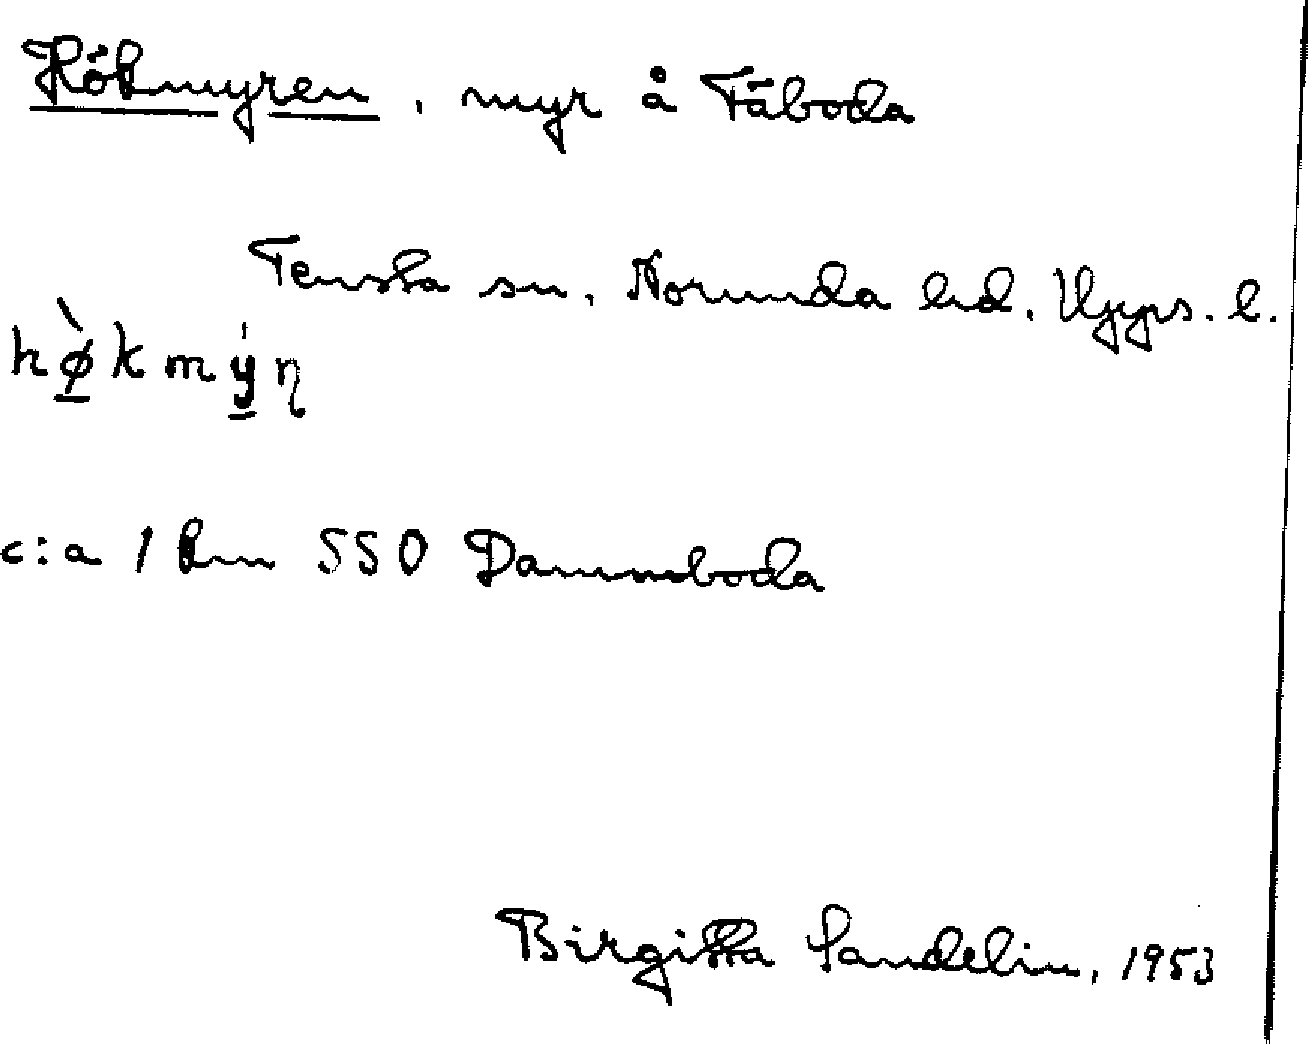 Hökmyren, myr å Fäboda
Tensta sn, Norunda hd, Upps. l.
hø̀kmýn̥
c:a 1 km SSO Dammboda
Birgitta Sandelin, 1953